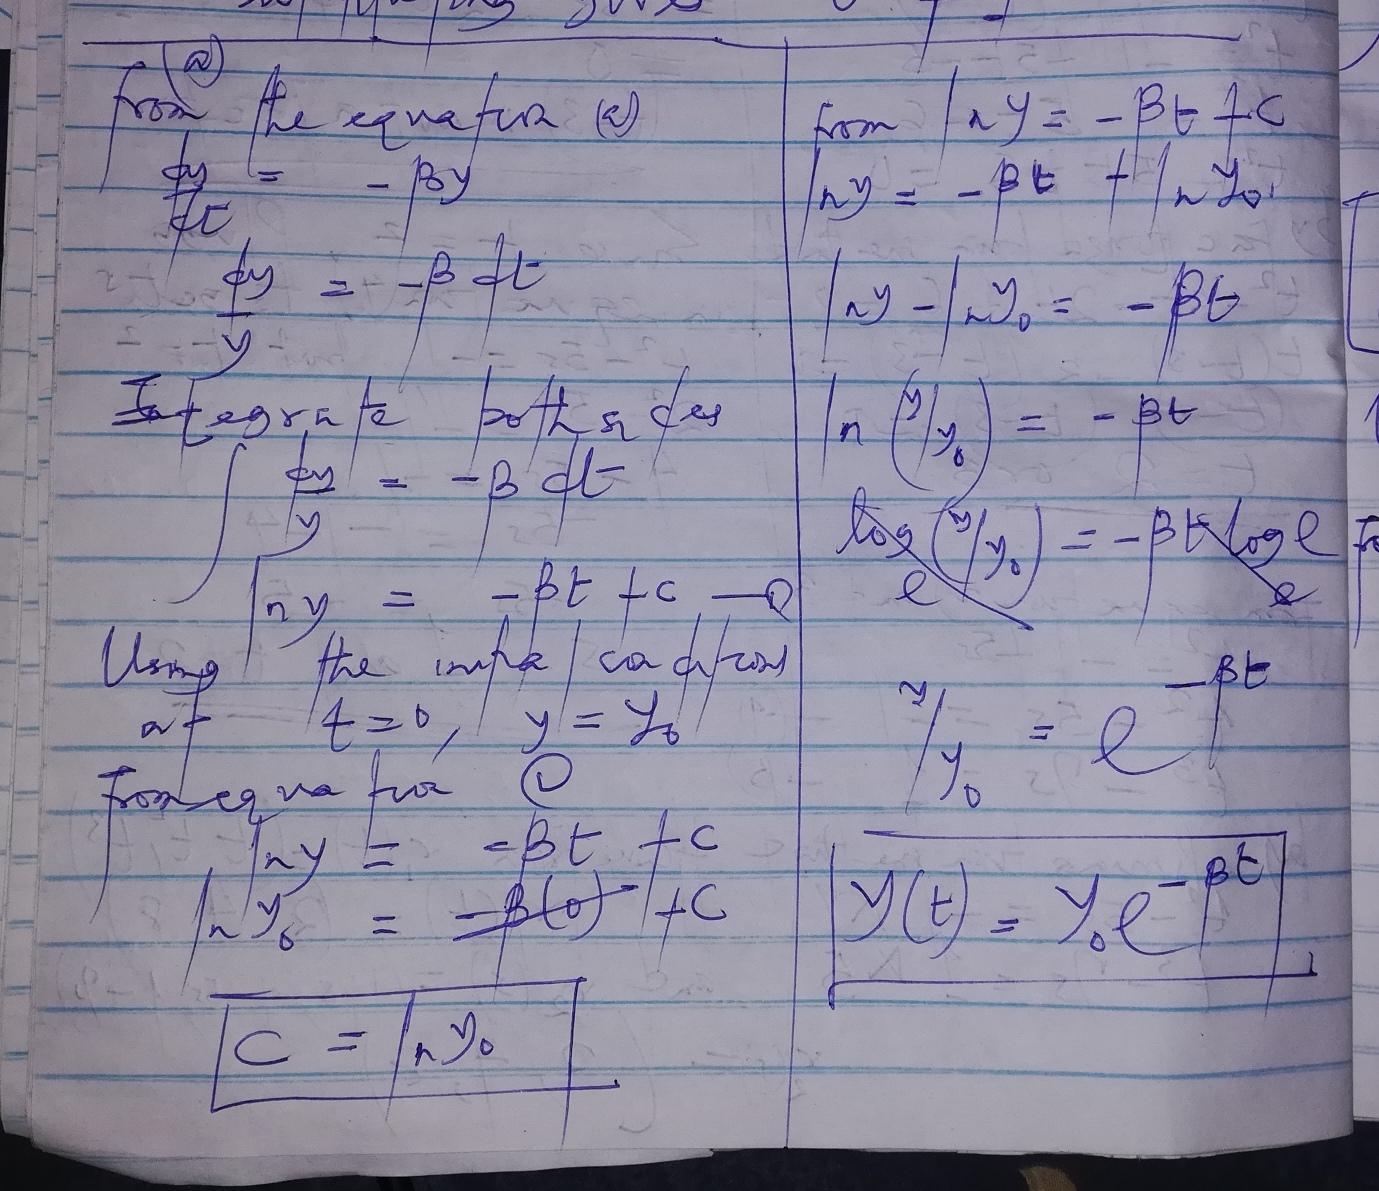 (a)
from the equation (a)
dy/dt = -βy
dy/y = -β dt
Integrate both sides
∫ dy/y = -β dt
ln y = -βt + c —①
Using the initial conditions
at t=0, y = y₀
From equation ①
ln y = -βt + c
ln y₀ = -β(0) + c
c = ln y₀
from ln y = -βt + c
ln y = -βt + ln y₀.
ln y - ln y₀ = -βt
ln (y/y₀) = -βt
logₑ (y/y₀) = -βt logₑ e
y/y₀ = e^(-βt)
y(t) = y₀e^(-βt)